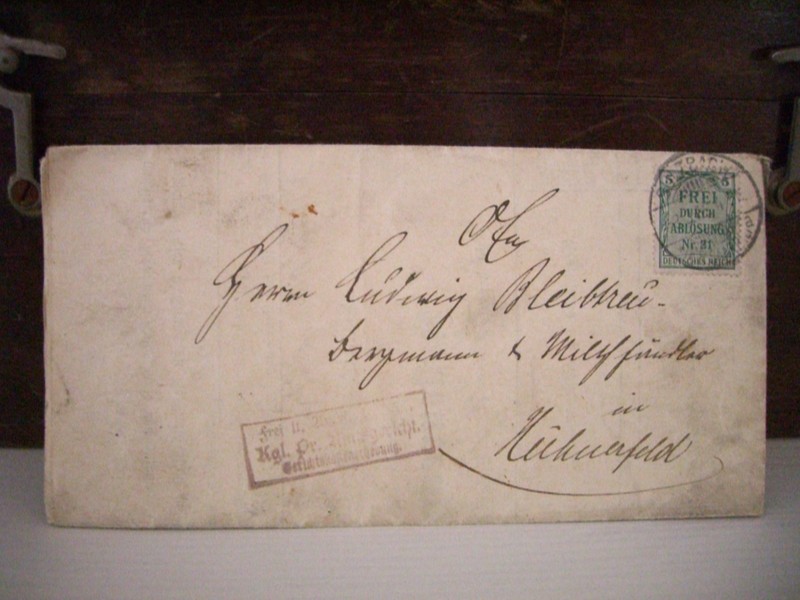 5 5
FREI
DURCH
ABLÖSUNG
Nr. 21
DEUTSCHES REICH
An
Herrn Ludwig Bleibtreu
Bergmann & Milchhändler
in
Hühnerfeld
Frei
Kgl. Pr. Amtsgericht.